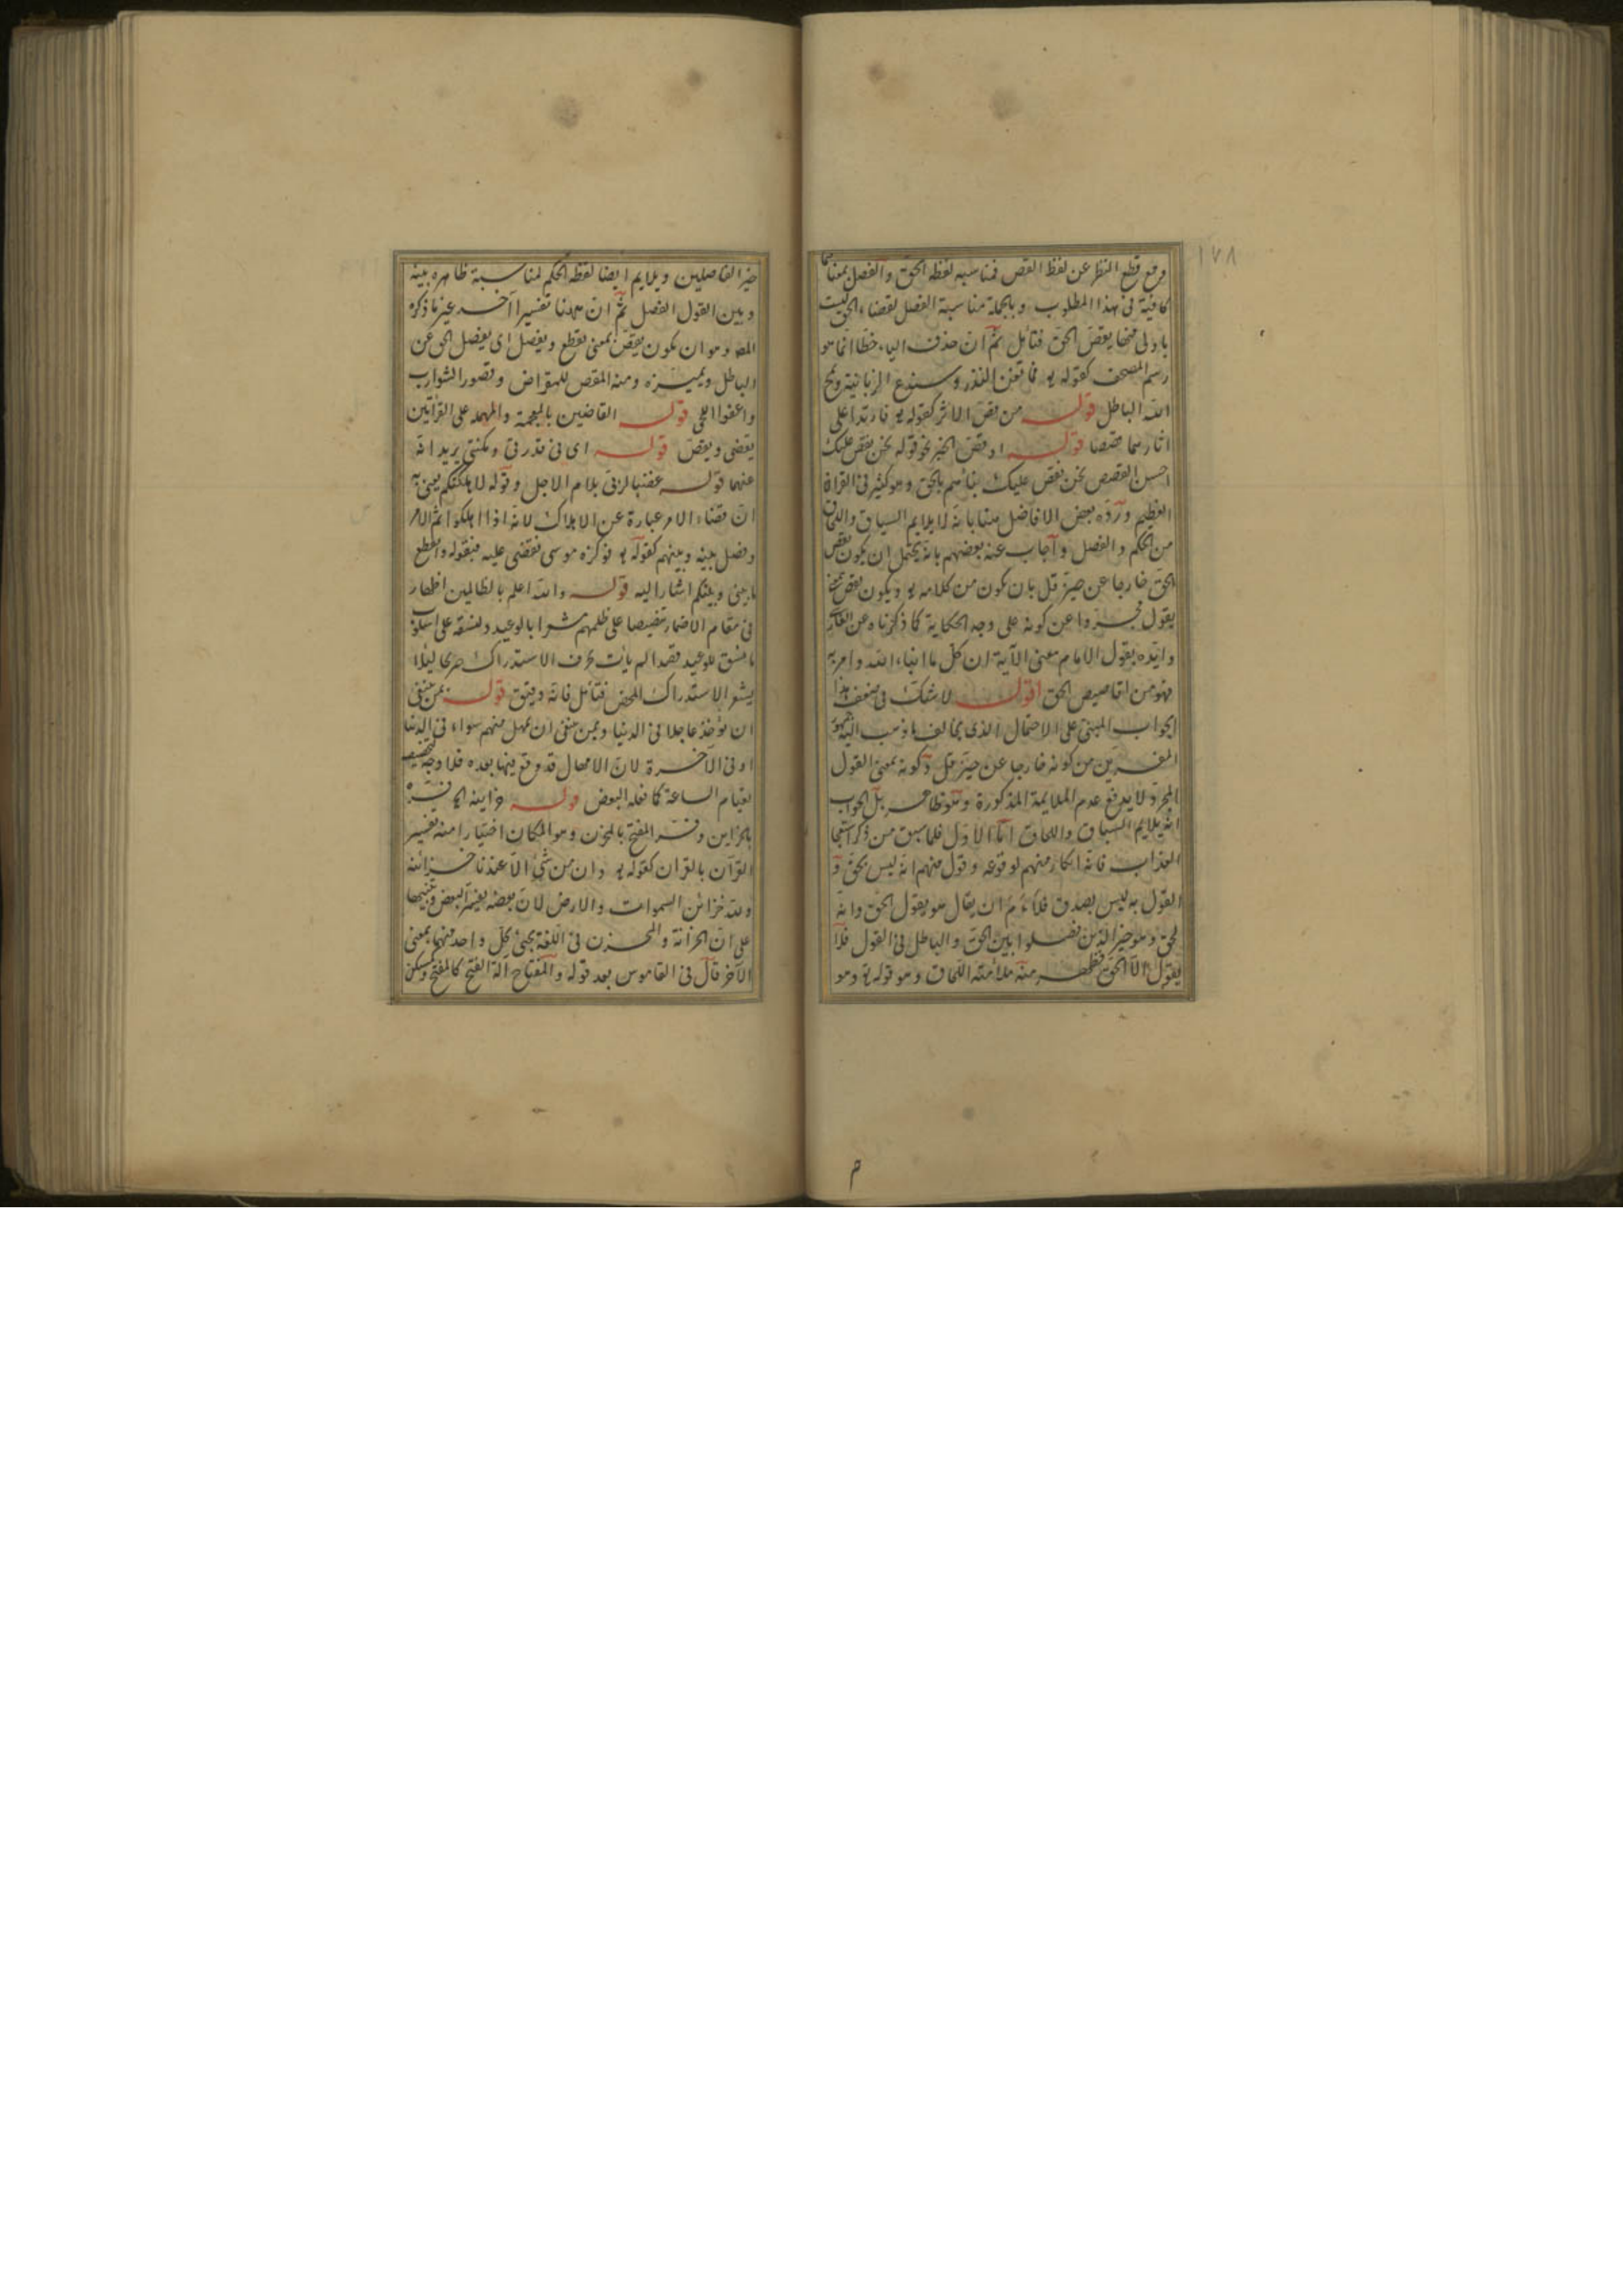 ١٧٨
ومع قطع النظر عن لفظ القص فمناسبه لفظه الحق والفصل بمعناها
كافية فى هذا المطلوب وبالجملة مناسبة الفصل لقضاء الحق ليست
باولى منها يقص الحق فتأمل ثم ان حذف الياء خطا انما هو
رسم المصحف كقوله تع فما تغن النذر وسندع الزبانية ويمح
الله الباطل قوله من قص الاثر كقوله تع فارتدا على
اثارهما قصصا قوله او قص الخبر نحو قوله نحن نقص عليك
احسن القصص نحن نقص عليك نبأهم بالحق وهو كثير فى القران
العظيم وردّه بعض الافاضل هنا بانه لا يلايم السياق واللحاق
من الحكم والفصل واجاب عنه بعضهم بانه يحتمل ان يكون يقص
الحق خارجا عن حيز قل بان يكون من كلامه تع ويكون يقص بمعنى
يقول مجردا عن كونه على وجه الحكاية كما ذكرناه عن
وايده بقول الامام معنى الآية ان كل ما انباء الله وامر به
فهو من اقاصيص الحق اقول لا شك فى ضعف هذا
الجواب المبنى على الاحتمال الذى يخالف ما ذهب اليه جمهور
المفسرين من كونه خارجا عن حيز قل وكونه بمعنى القول
المجرد لا يدفع عدم الملايمة المذكورة وهو ظاهر بل الجواب
انه يلايم السياق واللحاق اما الاول فلما سبق من ذكر استعجال
العذاب فانه انكار منهم لوقوعه وقول منهم انه ليس بحق و
القول به ليس بصدق فلائم ان يقال هو يقول الحق وانه
لحق وهو خير الذين فصلوا بين الحق والباطل فى القول فلا
يقول الا الحق فظهر منه ملائمته اللحاق وهو قوله تع وهو
خير الفاصلين ويلايم ايضا لفظه الحكم لمناسبة ظاهره بينه
وبين القول الفصل ثم ان ههنا تفسيرا آخر غير ما ذكره
المص وهو ان يكون يقص بمعنى يقطع ويفصل اى يفصل الحق عن
الباطل ويميزه ومنه المقص للمقراض وقصوا الشوارب
واعفوا اللحى قوله القاضين بالمعجمة والمهملة على القرائتين
يقضى ويقص قوله اى فى قدرتى ومكنتى يريد انه
عنهما قوله غضبا لربى بلام الاجل وقوله لاهلكتكم يعنى به
ان قضاء الامر عبارة عن الاهلاك لانه اذا اهلكوا تم الامر
وفصل بينه وبينهم كقوله تع فوكزه موسى فقضى عليه فبقوله وانقطع
ما بينى وبينكم اشار اليه قوله والله اعلم بالظالمين اظهار
فى مقام الاضمار تنصيصا على ظلمهم مشعرا بالوعيد ولنسقه على اسلوب
ما يسق للوعيد قصدا لم يأت بحرف الاستدراك صريحا لئلا
يشعر الاستدراك المحض فتأمل فانه دقيق قوله بمن ينبغى
ان يؤخذ عاجلا فى الدنيا وبمن ينبغى ان يمهل منهم سواء فى الدنيا
او فى الآخرة لان الامهال قد وقع فيها بعده فلا وجه لتخصيصه
بقيام الساعة كما فعله البعض قوله خزاينه
بالخزاين وفسر المفتح بالمخزن وهو المكان اختيارا منه تفسير
القرآن بالقران كقوله تع وان من شئ الا عندنا خزائنه
ولله خزائن السموات والارض لان بعضه يفسر البعض وتنبيها
على ان الخزانة والمخزن فى اللغة يجئ كل واحد منهما بمعنى
الآخر قال فى القاموس بعد قوله والمفتاح آلة الفتح كالمفتح وكمسكن
م